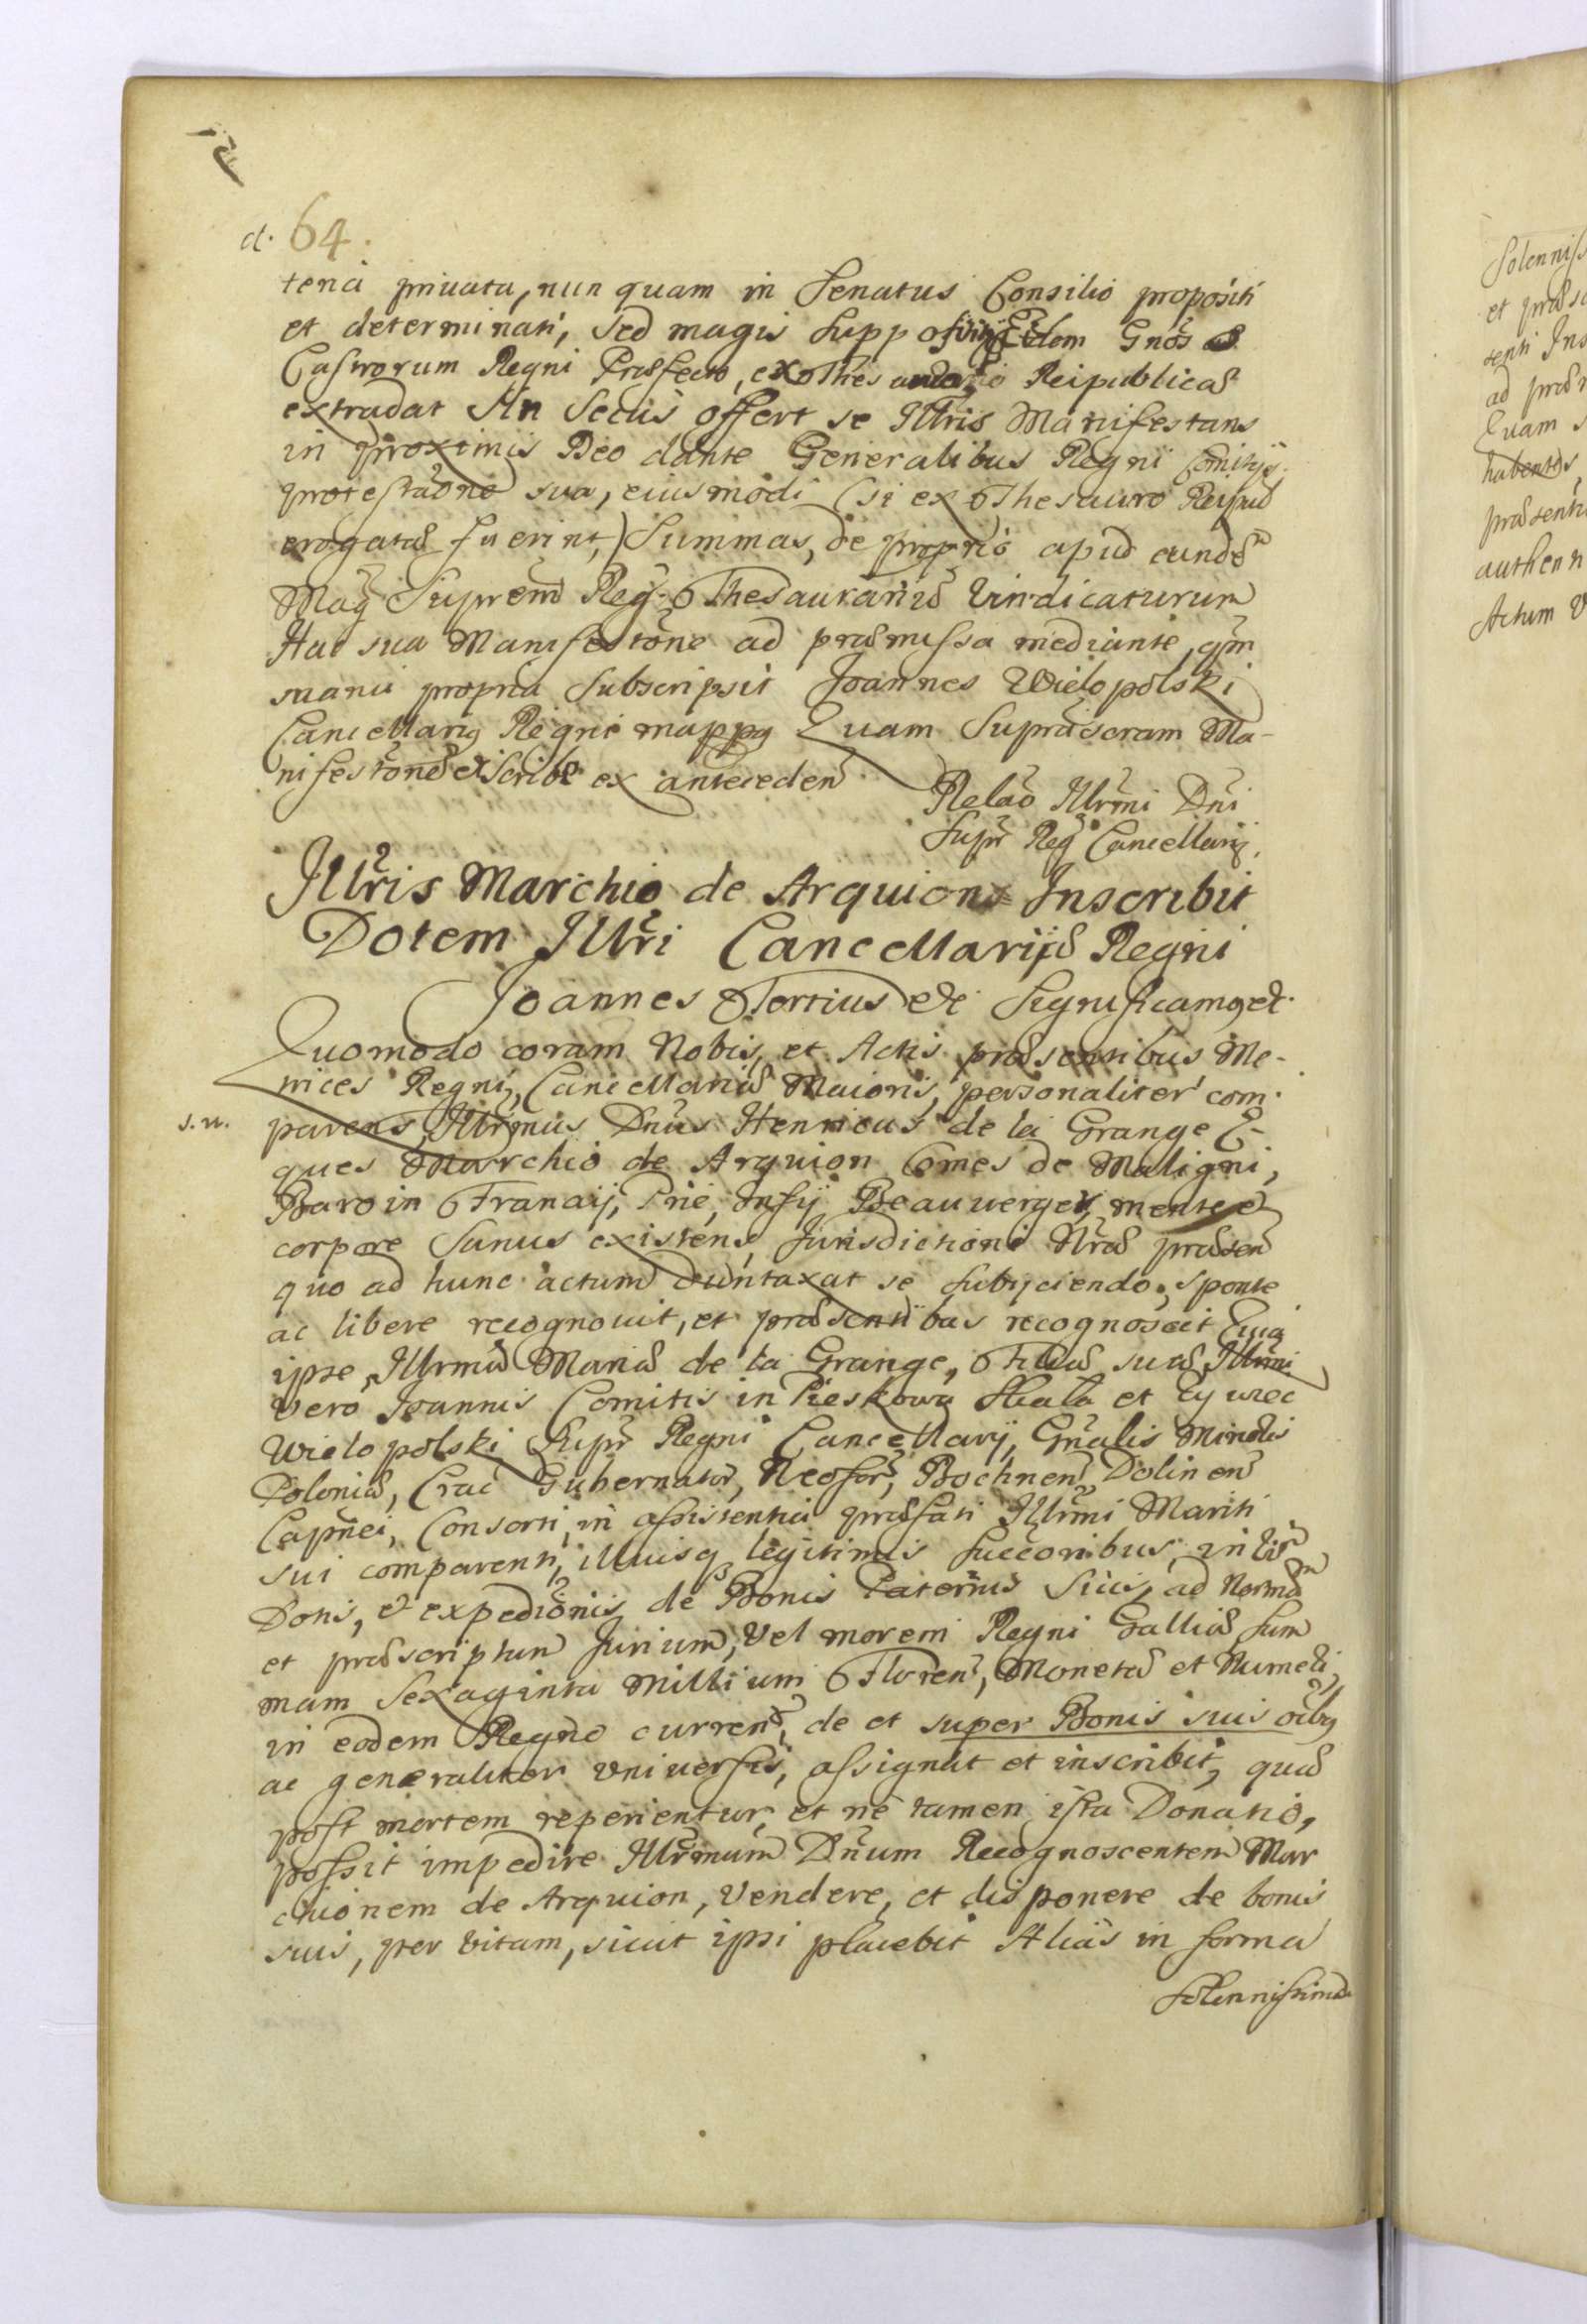 ct. 64.
tena privata, nun quam in Senatus Consilio propositi
et determinati, sed magis supp Eidem Gnos
Castrorum Regni Præfecto, ex Reipublicæ
extradat An Secus offert se Illris Manifestans
in proximis Deo dante Generalibus Regni Comitijs
protestaõne sua, eiusmodi (si ex Thesauro Reipub
erogatæ fuerint,) Summas, de proprio apud eundẽ
Mag Supremũ Reg. Thesaurariũ Vindicaturum
Hac sua Manifestõne ad præmissa mediante, qm
manu propria Subscripsit Joannes Wielopolski
Cancellarius Regni mappa Quam Suprascram Ma-
nifestõnẽ et Scribe ex antecedeñ
Relaõ Illrmi Dni
Supr Reg Cancellarij.
Illris Marchio de Arquion Inscribit
Dotem Illri Cancellarijæ Regni
Joannes Tertius etc Significamus et.
Quomodo coram Nobis, et Actis præsentibus Me-
trices Regni, Cancellariæ Maioris, personaliter com-
s. n. parens, Illrmus Dnus Henricus de la Grange E-
ques Marchio de Arquion Comes de Maligni,
Baro in Prie, Beauverger, mente et
corpore Sanus existens, Jurisdictioni Nræ præsen
quo ad hunc actum duntaxat se subijciendo, sponte
ac libere recognovit, et præsentibus recognoscit Quia
ipse, Illrmæ Mariæ de la Grange, Filiæ suæ, Illrmi
Vero Joannis Comitis in Pieskowa Skała et Zywiec
Wielopolski Supr Regni Cancellarij, Gnalis Minoris
Poloniæ, Crac Gubernator, Neofor, Bochnen, Dolinen
Capnei, Consorti, in assistentia præfati Illrmi Mariti
sui comparenti, illiusq legitimis Succoribus, in Vim
Dotis, et expediõnis de Bonis Paternis Suis, ad Normam
et præscriptum Jurium, Vel morem Regni Galliæ Sum
mam Sexaginta Millium Floren, Monetæ et Numeri
in eodem Regno curren, de et super Bonis suis oĩbus
ac generaliter Universis, assignat et inscribit, quæ
post mortem reperientur, et ne tamen ista Donatio,
possit impedire Illrmum Dnum Recognoscentem Mar
chionem de Arquion, Vendere, et disponere de bonis
suis, per Vitam, sicut ipsi placebit Alias in forma
Solennissima
Solenniss
et præs
senti Ins
ad præ
Quam s
habentes,
præsenti
authen
Actum V